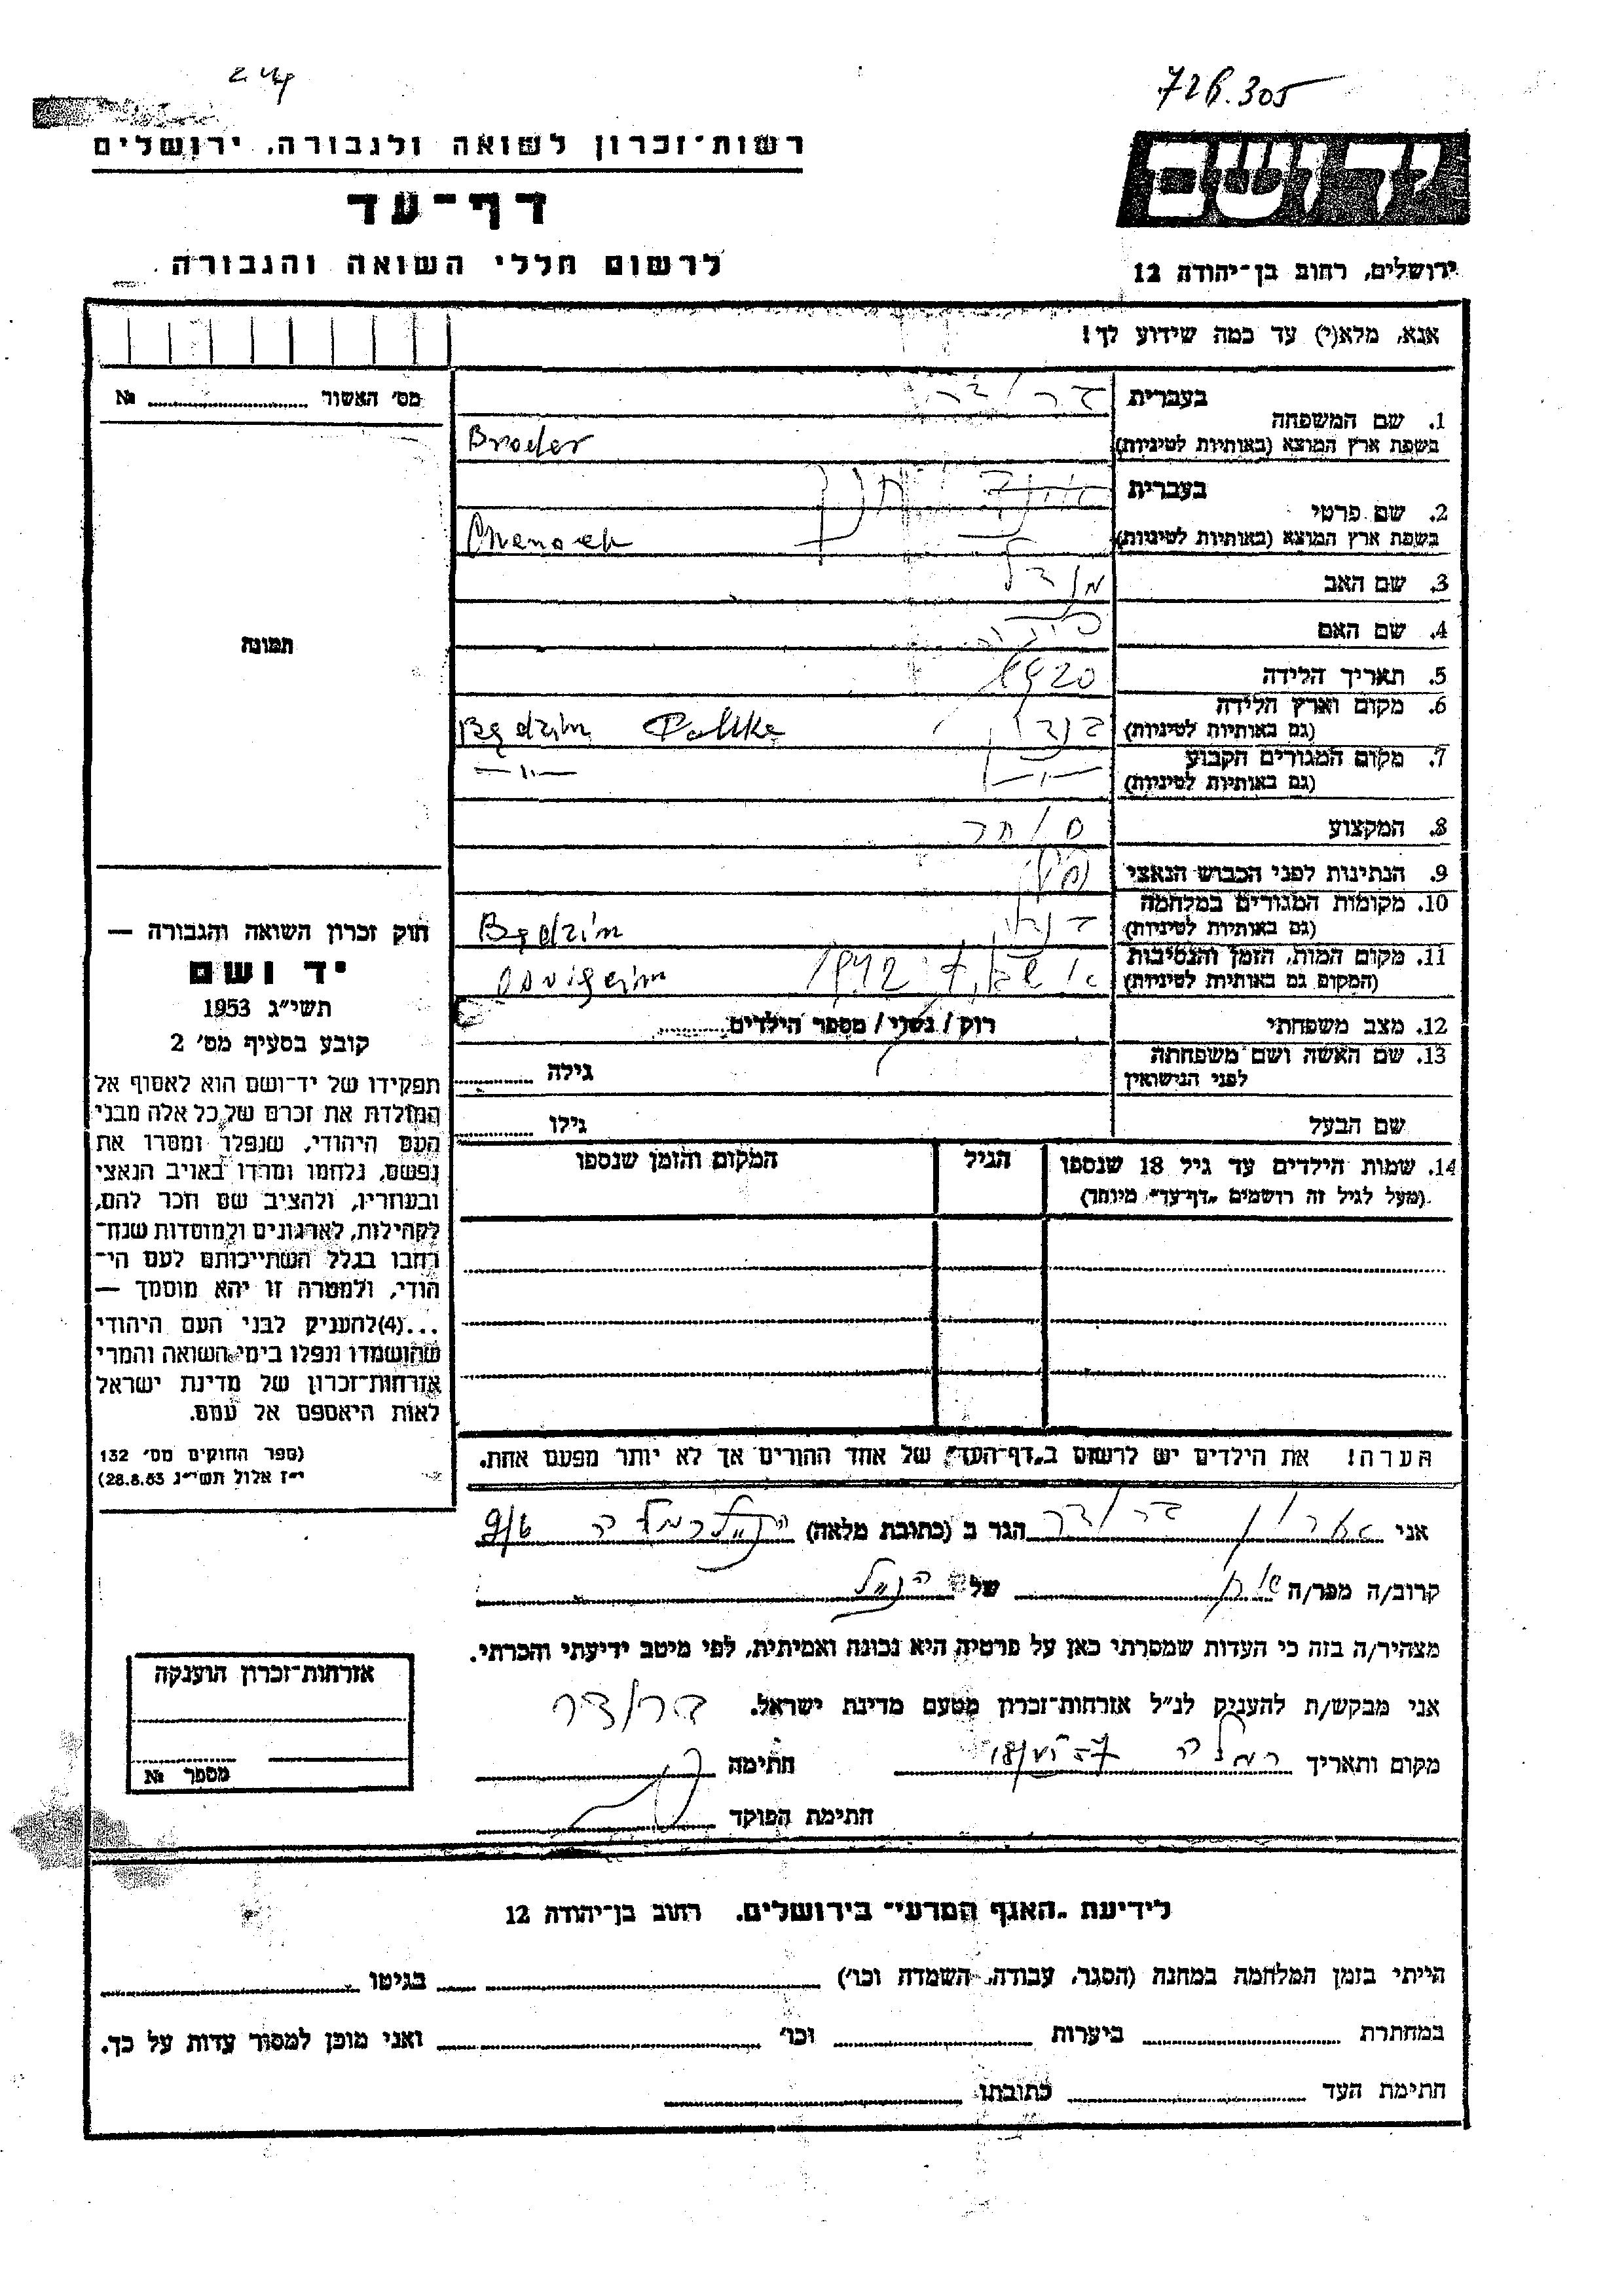 726.305
רשות־זכרון לשואה ולגבורה, ירושלים
יד ושם
דף־עד
לרשום חללי השואה והגבורה
ירושלים, רחוב בן־יהודה 12
אנא, מלא(י) עד כמה שידוע לך!
מס׳ האשור № 
1. שם המשפחה
בעברית ברודר
בשפת ארץ המוצא (באותיות לטיניות) Broder
2. שם פרטי
בעברית חנך
בשפת ארץ המוצא (באותיות לטיניות) Chenoch
3. שם האב מנדל
4. שם האם
5. תאריך הלידה 1920
6. מקום וארץ הלידה
(גם באותיות לטיניות) בנדין Będzin Polska
7. מקום המגורים הקבוע
(גם באותיות לטיניות) —״— —״—
8. המקצוע סוחר
9. הנתינות לפני הכבוש הנאצי
10. מקומות המגורים במלחמה
(גם באותיות לטיניות) בנדין Będzin
11. מקום המות, הזמן והנסיבות
(המקום גם באותיות לטיניות) 1942
12. מצב משפחתי רוק / נשוי / מספר הילדים
13. שם האשה ושם משפחתה
לפני הנישואין גילה
שם הבעל גילו
14. שמות הילדים עד גיל 18 שנספו הגיל המקום והזמן שנספו
(מעל לגיל זה רושמים „דף־עד״ מיוחד)
הערה! את הילדים יש לרשום ב„דף־העד״ של אחד ההורים אך לא יותר מפעם אחת.
תמונה
חוק זכרון השואה והגבורה —
יד ושם
תשי״ג 1953
קובע בסעיף מס׳ 2
תפקידו של יד־ושם הוא לאסוף אל
המולדת את זכרם של כל אלה מבני
העם היהודי, שנפלו ומסרו את
נפשם, נלחמו ומרדו באויב הנאצי
ובעוזריו, ולהציב שם וזכר להם,
לקהילות, לארגונים ולמוסדות שנח־
רבו בגלל השתייכותם לעם הי־
הודי, ולמטרה זו יהא מוסמך —
...(4)להעניק לבני העם היהודי
שהושמדו ונפלו בימי השואה והמרי
אזרחות־זכרון של מדינת ישראל
לאות היאספם אל עמם.
(ספר החוקים מס׳ 132
י״ז אלול תשי״ג 28.8.53)
אני אהרון ברודר הגר ב (כתובת מלאה) רמלה 9/6
קרוב/ה מפר/ה של הנ״ל
מצהיר/ה בזה כי העדות שמסרתי כאן על פרטיה היא נכונה ואמיתית, לפי מיטב ידיעתי והכרתי.
אני מבקש/ת להעניק לנ״ל אזרחות־זכרון מטעם מדינת ישראל. ברודר
מקום ותאריך רמלה חתימה
חתימת הפוקד
אזרחות־זכרון הוענקה
מספר №
לידיעת „האגף המדעי״ בירושלים, רחוב בן־יהודה 12
הייתי בזמן המלחמה במחנה (הסגר, עבודה, השמדה וכו׳) בגיטו
במחתרת ביערות וכו׳ ואני מוכן למסור עדות על כך.
חתימת העד כתובתו